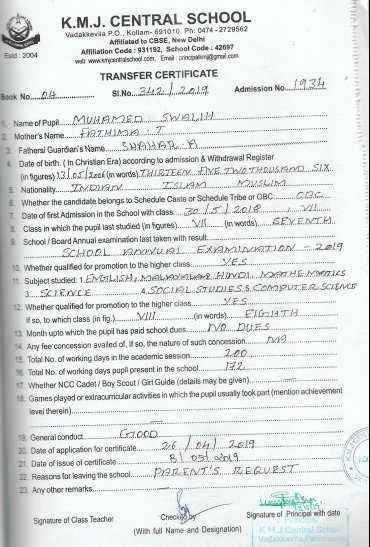 K.M.J. CENTRAL SCHOOL
Vadakkevila P.O., Kollam- 691010. Ph: 0474 - 2729562
Affiliated to CBSE, New Delhi
Estd : 2004
Affiliation Code : 931192, School Code : 42697
web : www.kmjcentralschool.com, Email : principalkmj@gmail.com
TRANSFER CERTIFICATE
Book No 04 Sl.No. 342/2019 Admission No. 1934
1. Name of Pupil MUHAMED SWALIH
2. Mother's Name FATHIMA . T
3. Fathers/ Guardian's Name SHAHAR . A
4. Date of birth. ( In Christian Era) according to admission & Withdrawal Register
(in figures) 13/05/2006 (in words) THIRTEEN FIVE TWO THOUSAND SIX
5. Nationality INDIAN ISLAM MUSLIM
6. Whether the candidate belongs to Schedule Caste or Schedule Tribe or OBC OBC
7. Date of first Admission in the School with class 30/5/2018, VII
8. Class in which the pupil last studied (in figures) VII (in words) SEVENTH
9. School / Board Annual examination last taken with result
SCHOOL ANNUAL EXAMINATION - 2019
10. Whether qualified for promotion to the higher class YES
11. Subject studied: 1. ENGLISH, MALAYALAM HINDI, MATHEMATICS
3. SCIENCE 4. SOCIAL STUDIES 5. COMPUTER SCIENCE
12. Whether qualified for promotion to the higher class YES
If so, to which class (in fig.) VIII (in words) EIGHTH
13. Month upto which the pupil has paid school dues NO DUES
14. Any fee concession availed of, If so, the nature of such concession NA
15. Total No. of working days in the academic session 200
16. Total No. of working days pupil present in the school 172
17. Whether NCC Cadet / Boy Scout / Girl Guide (details may be given)
18. Games played or extracurricular activities in which the pupil usually took part (mention achievement
level therein)
19. General conduct GOOD
20. Date of application for certificate 26/04/2019
21. Date of issue of certificate 8/05/2019
22. Reasons for leaving the school PARENT'S REQUEST
23. Any other remarks
Signature of Class Teacher
Checked by
(With full Name and Designation)
Signature of Principal with date
Principal
K.M.J Central School